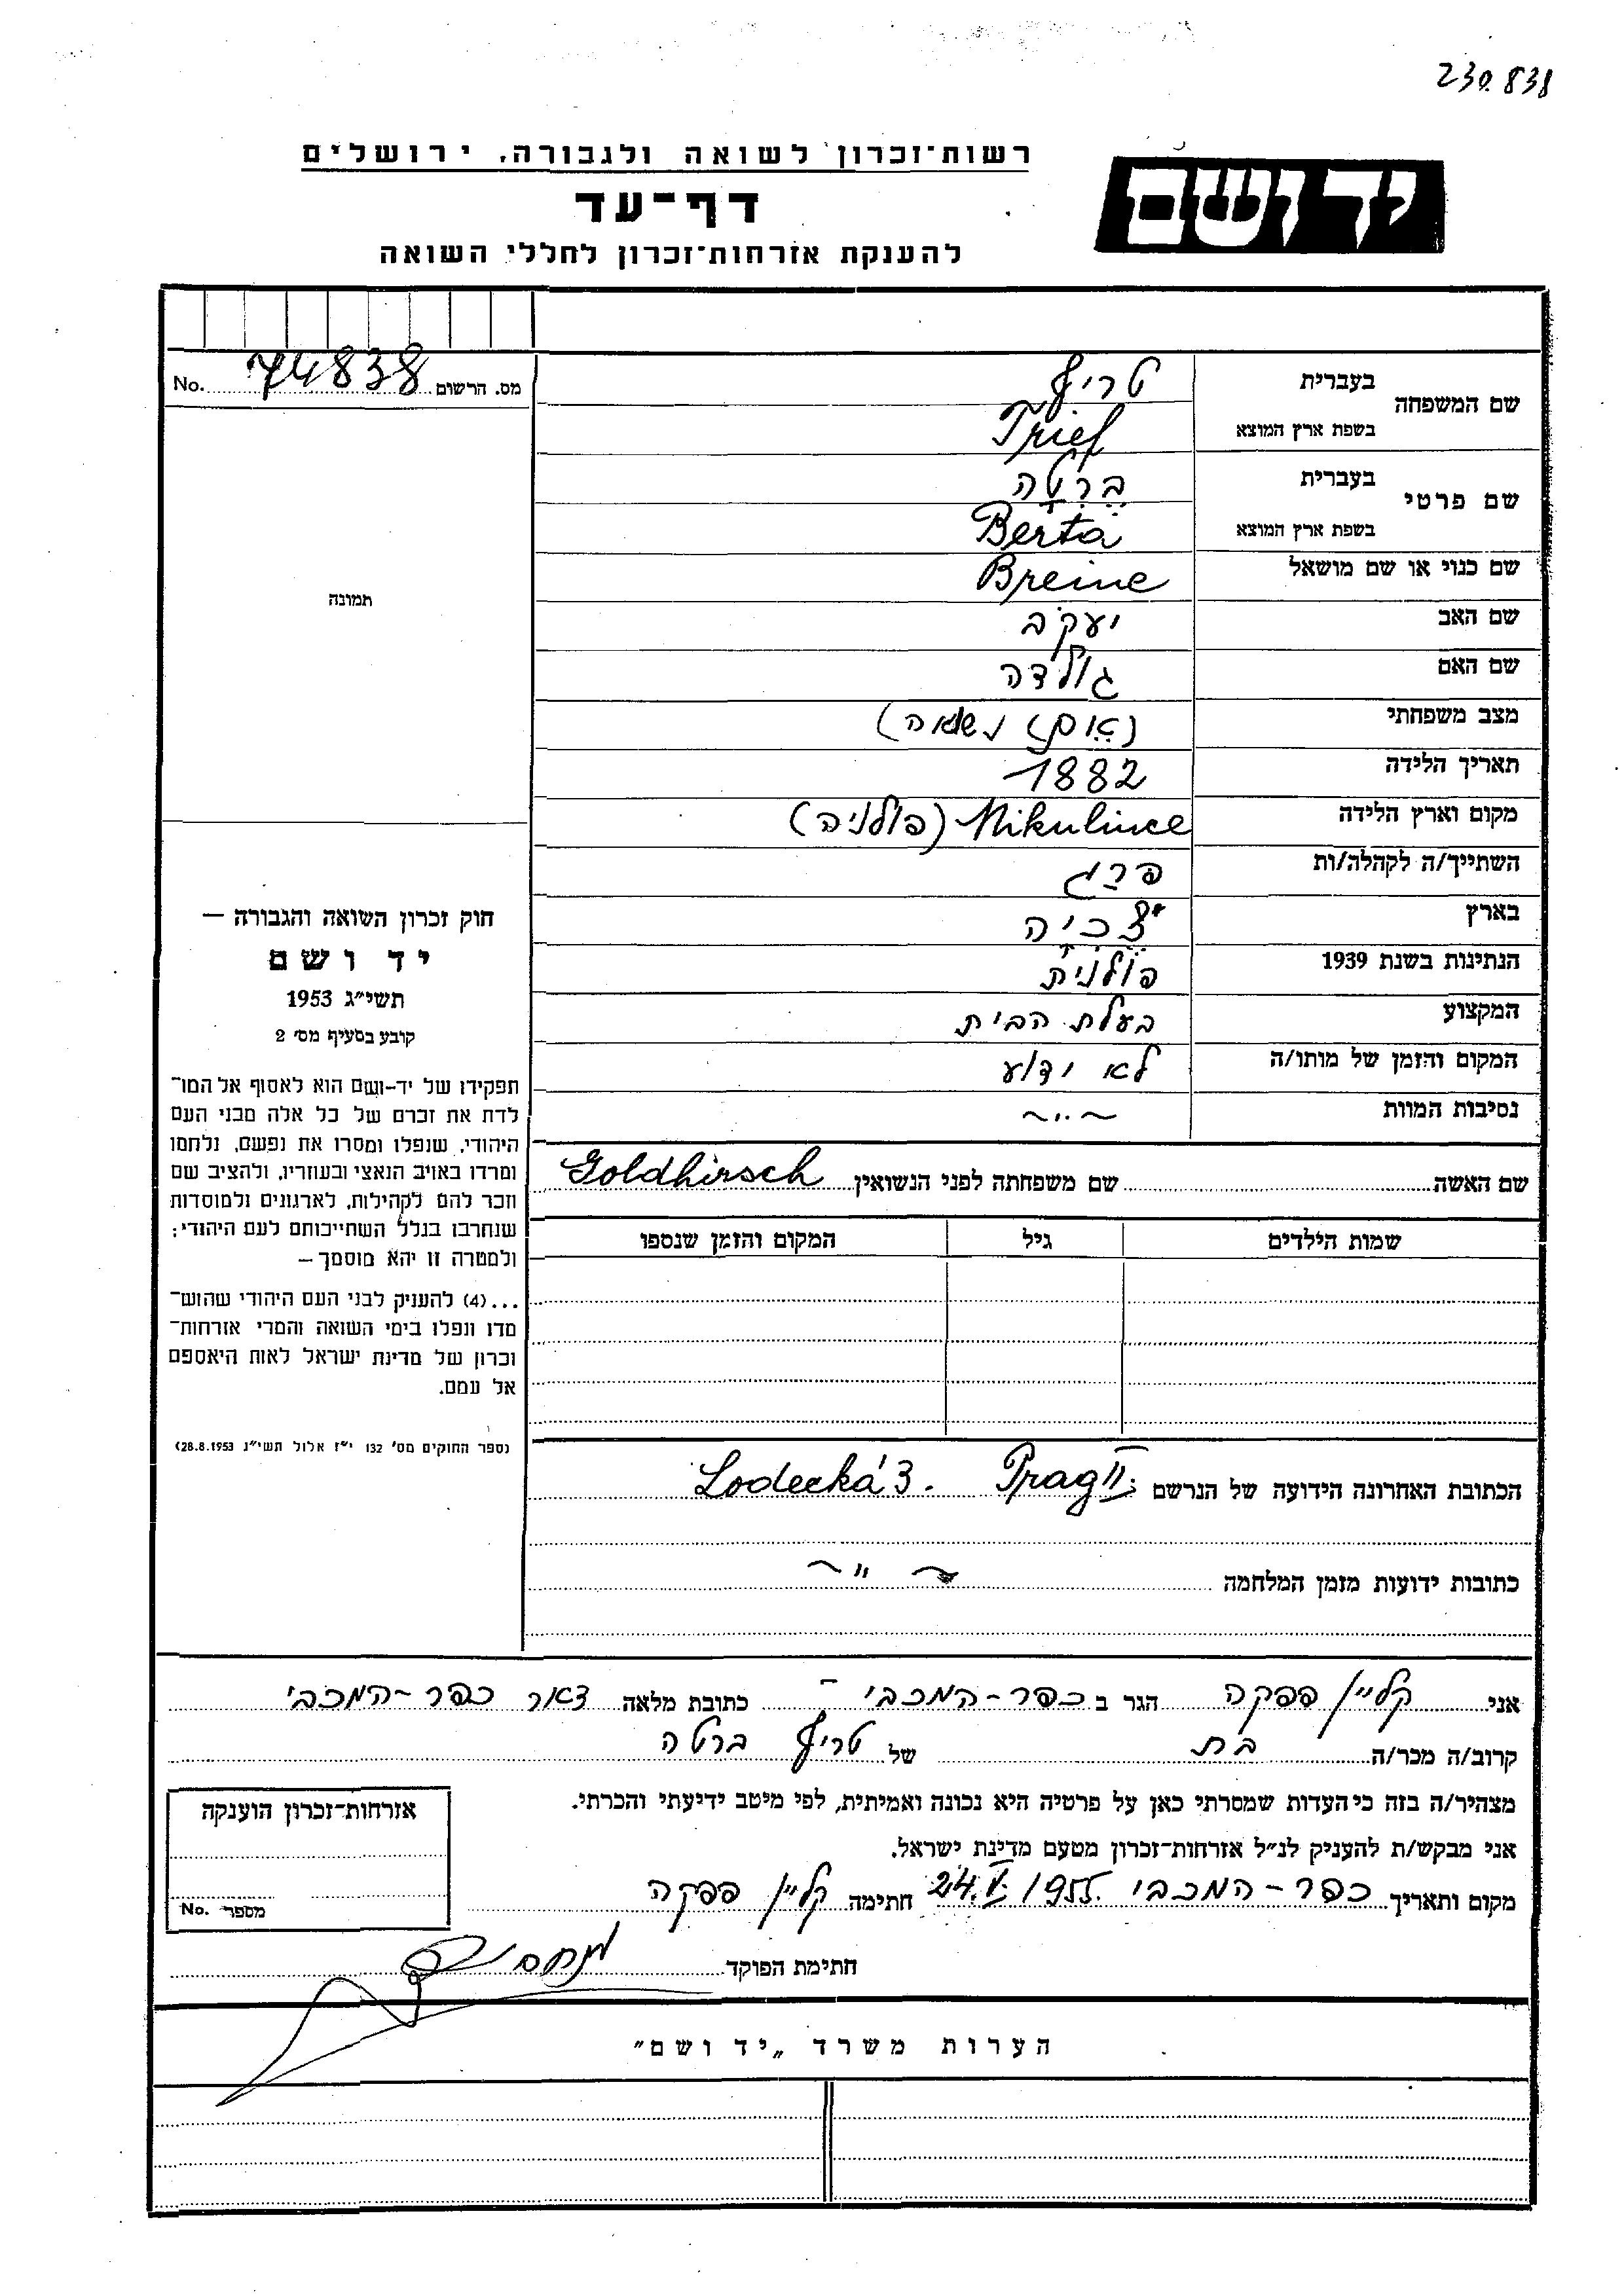 230.838
רשות־זכרון לשואה ולגבורה, ירושלים
יד ושם
דף־עד
להענקת אזרחות־זכרון לחללי השואה
מס. הרשום 74838 No.
שם המשפחה בעברית טריף
בשפת ארץ המוצא Trief
שם פרטי בעברית ברטה
בשפת ארץ המוצא Berta
שם כנוי או שם מושאל Breine
שם האב יעקב
שם האם גולדה
מצב משפחתי (אם) נשואה)
תאריך הלידה 1882
מקום וארץ הלידה Mikulince (פולניה)
השתייך/ה לקהלה/ות פרג
בארץ צ'כיה
הנתינות בשנת 1939 פולנית
המקצוע בעלת הבית
המקום והזמן של מותו/ה לא ידוע
נסיבות המוות ~ " ~
תמונה
חוק זכרון השואה והגבורה —
יד ושם
תשי"ג 1953
קובע בסעיף מס' 2
תפקידו של יד-ושם הוא לאסוף אל המו־
לדת את זכרם של כל אלה מבני העם
היהודי, שנפלו ומסרו את נפשם, נלחמו
ומרדו באויב הנאצי ובעוזריו, ולהציב שם
וזכר להם לקהילות, לארגונים ולמוסדות
שנחרבו בגלל השתייכותם לעם היהודי;
ולמטרה זו יהא מוסמך —
...(4) להעניק לבני העם היהודי שהוש־
מדו ונפלו בימי השואה והמרי אזרחות־
זכרון של מדינת ישראל לאות היאספם
אל עמם.
(ספר החוקים מס' 132 י"ז אלול תשי"ג 28.8.1953)
שם האשה שם משפחתה לפני הנשואין Goldhirsch
שמות הילדים גיל המקום והזמן שנספו
הכתובת האחרונה הידועה של הנרשם: Prag II Lodecká 3.
כתובות ידועות מזמן המלחמה ~ " ~
אני קליין פפקה הגר ב כפר-המכבי - כתובת מלאה דאר כפר-המכבי
קרוב/ה מכר/ה בת של טריף ברטה
מצהיר/ה בזה כי העדות שמסרתי כאן על פרטיה היא נכונה ואמיתית, לפי מיטב ידיעתי והכרתי.
אני מבקש/ת להעניק לנ"ל אזרחות־זכרון מטעם מדינת ישראל.
מקום ותאריך כפר-המכבי 24.V.1955. חתימה קליין פפקה
אזרחות־זכרון הוענקה
מספר No.
חתימת הפוקד
הערות משרד „יד ושם"